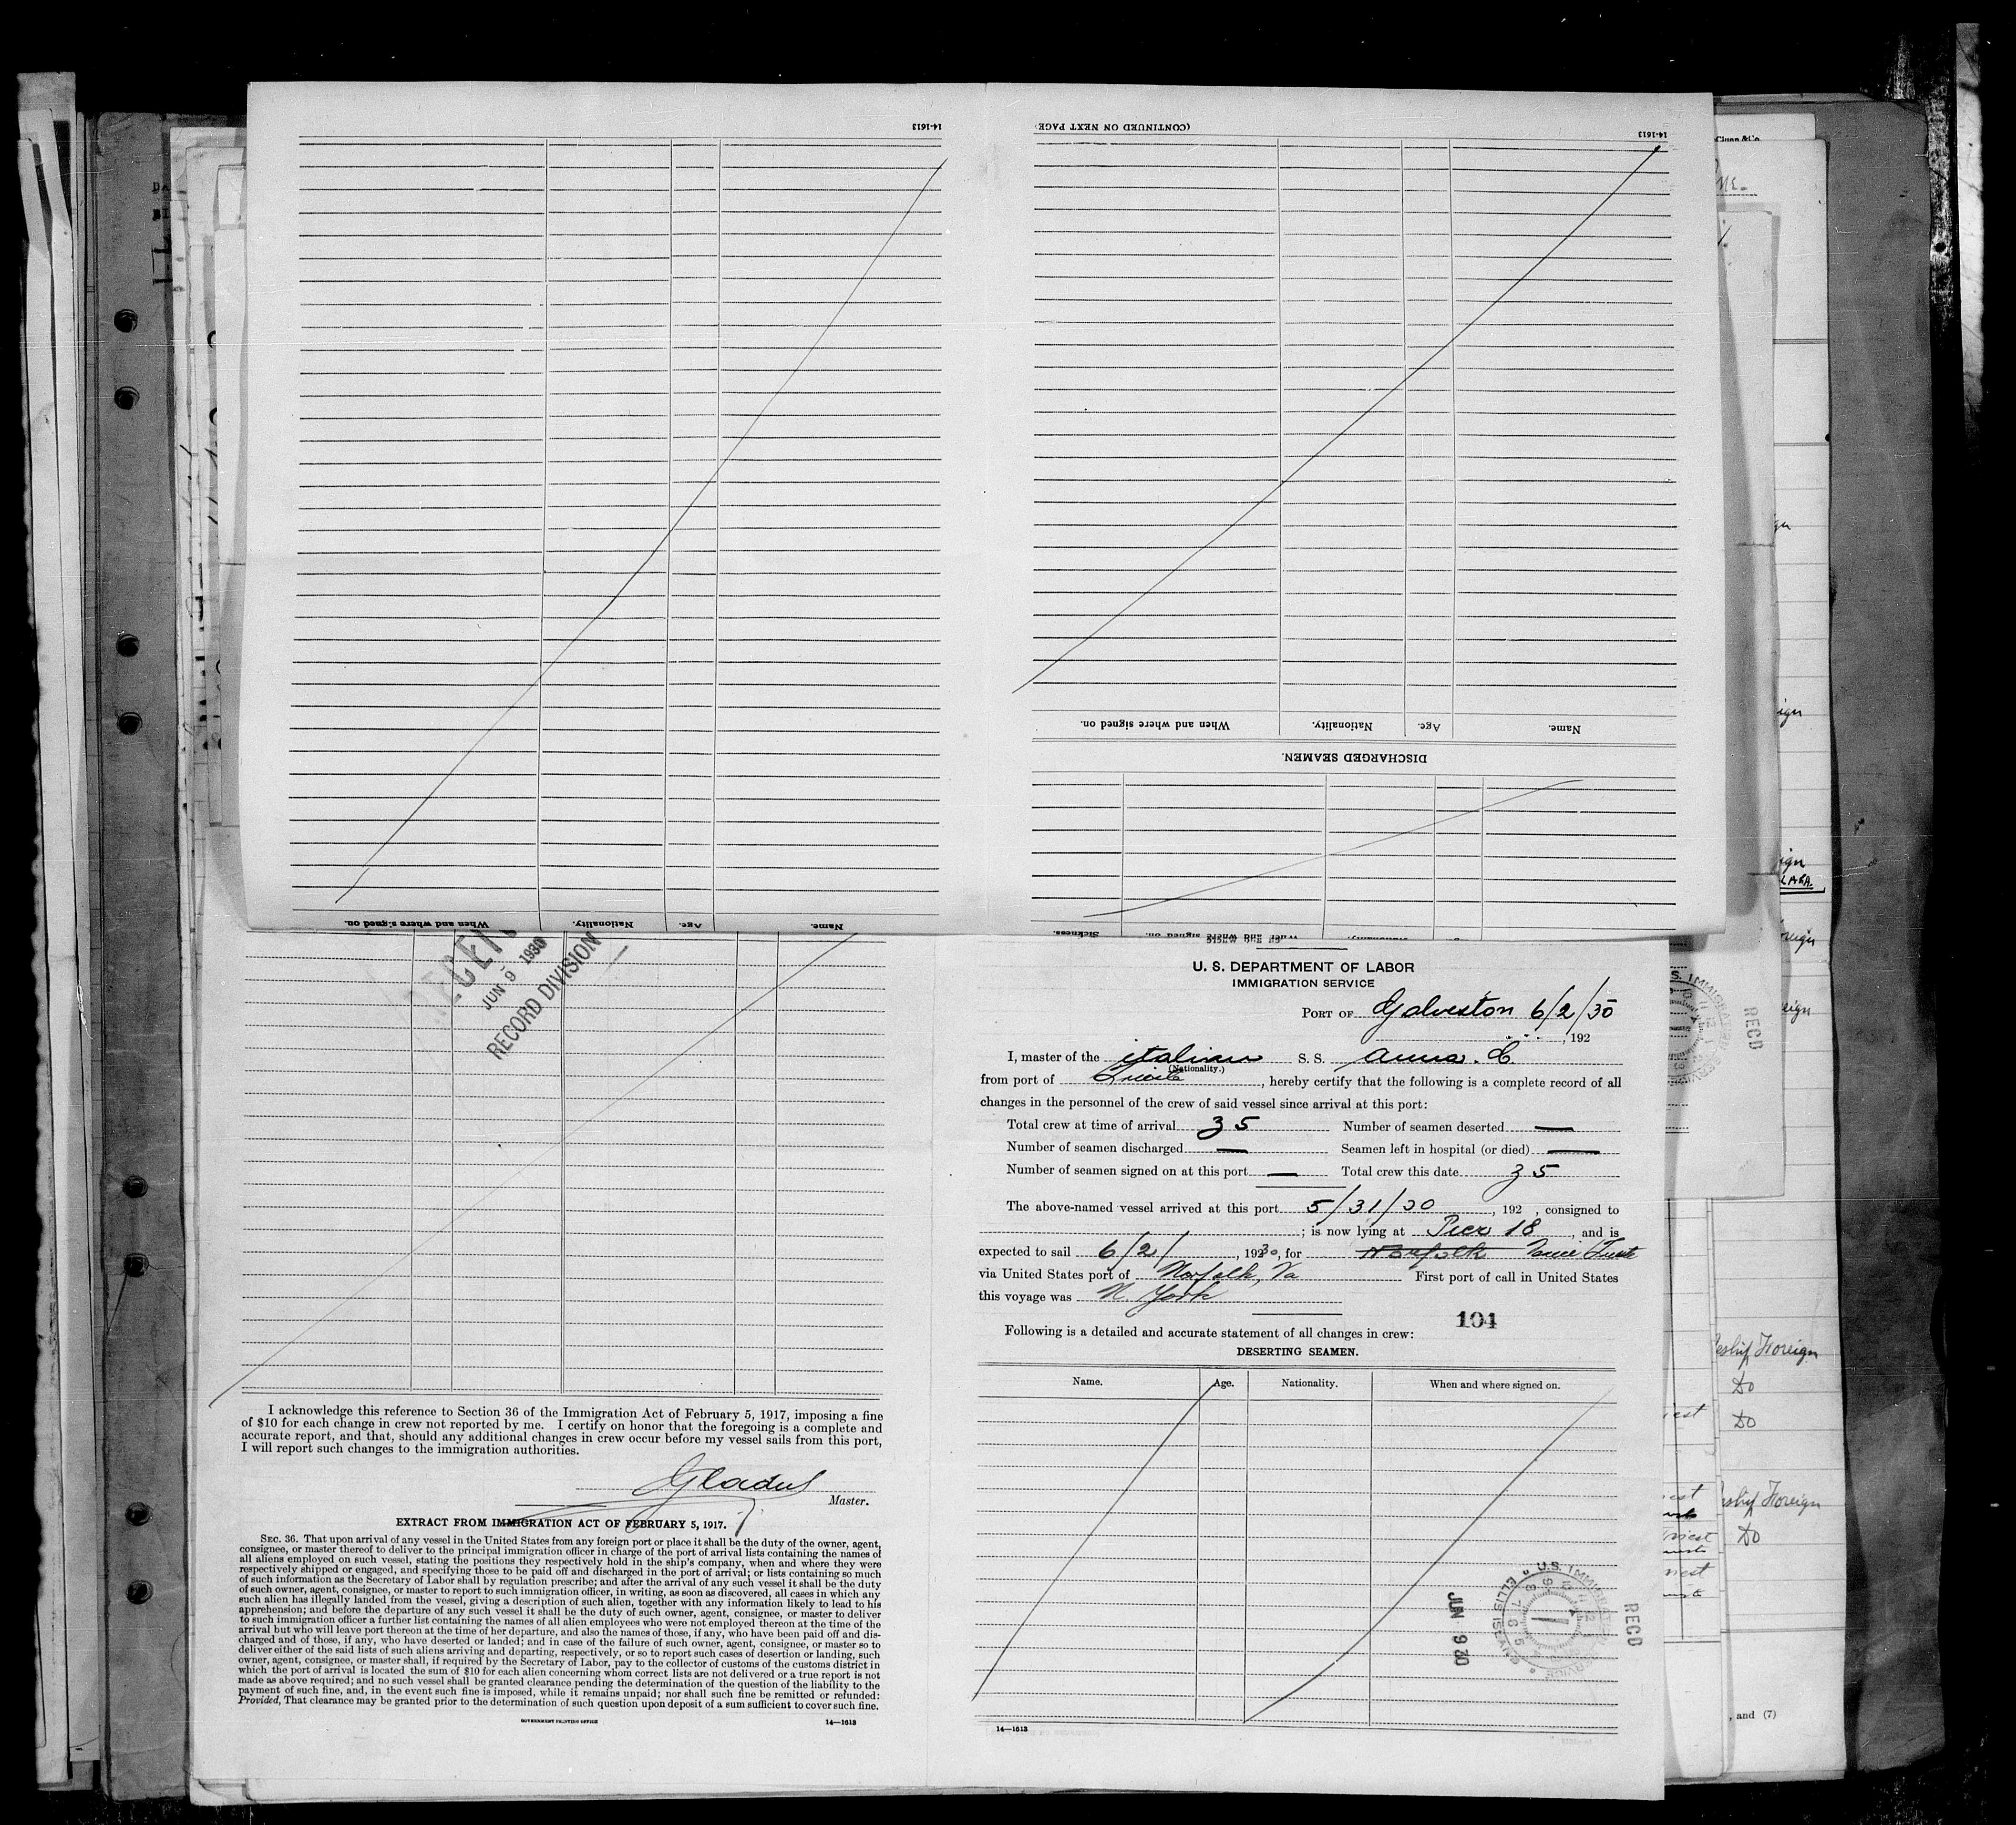 14-1613
(CONTINUED ON NEXT PAGE)
14-1613
When and where signed on. Nationality. Age. Name.
DISCHARGED SEAMEN.
Sickness. When and where signed on. Nationality.
When and where signed on. Nationality. Age. Name.
JUN 9 1930
RECORD DIVISION
U. S. DEPARTMENT OF LABOR
IMMIGRATION SERVICE
PORT OF Galveston 6/2/30
, 192
I, master of the italian S. S. Anna. C.
(Nationality.)
from port of , hereby certify that the following is a complete record of all
changes in the personnel of the crew of said vessel since arrival at this port:
Total crew at time of arrival 35 Number of seamen deserted —
Number of seamen discharged — Seamen left in hospital (or died) —
Number of seamen signed on at this port — Total crew this date 35
The above-named vessel arrived at this port 5/31/30 , 192 , consigned to
; is now lying at Pier 18 , and is
expected to sail 6/2/ , 1930, for Norfolk
via United States port of Norfolk, Va First port of call in United States
this voyage was N. York
104
Following is a detailed and accurate statement of all changes in crew:
DESERTING SEAMEN.
Name. Age. Nationality. When and where signed on.
JUN 9 30
U.S. IMMIGRATION SERVICE
ELLIS ISLAND
RECD
14—1613
I acknowledge this reference to Section 36 of the Immigration Act of February 5, 1917, imposing a fine
of $10 for each change in crew not reported by me. I certify on honor that the foregoing is a complete and
accurate report, and that, should any additional changes in crew occur before my vessel sails from this port,
I will report such changes to the immigration authorities.
Master.
EXTRACT FROM IMMIGRATION ACT OF FEBRUARY 5, 1917.
SEC. 36. That upon arrival of any vessel in the United States from any foreign port or place it shall be the duty of the owner, agent,
consignee, or master thereof to deliver to the principal immigration officer in charge of the port of arrival lists containing the names of
all aliens employed on such vessel, stating the positions they respectively hold in the ship's company, when and where they were
respectively shipped or engaged, and specifying those to be paid off and discharged in the port of arrival; or lists containing so much
of such information as the Secretary of Labor shall by regulation prescribe; and after the arrival of any such vessel it shall be the duty
of such owner, agent, consignee, or master to report to such immigration officer, in writing, as soon as discovered, all cases in which any
such alien has illegally landed from the vessel, giving a description of such alien, together with any information likely to lead to his
apprehension; and before the departure of any such vessel it shall be the duty of such owner, agent, consignee, or master to deliver
to such immigration officer a further list containing the names of all alien employees who were not employed thereon at the time of the
arrival but who will leave port thereon at the time of her departure, and also the names of those, if any, who have been paid off and dis-
charged and of those, if any, who have deserted or landed; and in case of the failure of such owner, agent, consignee, or master so to
deliver either of the said lists of such aliens arriving and departing, respectively, or so to report such cases of desertion or landing, such
owner, agent, consignee, or master shall, if required by the Secretary of Labor, pay to the collector of customs of the customs district in
which the port of arrival is located the sum of $10 for each alien concerning whom correct lists are not delivered or a true report is not
made as above required; and no such vessel shall be granted clearance pending the determination of the question of the liability to the
payment of such fine, and, in the event such fine is imposed, while it remains unpaid; nor shall such fine be remitted or refunded:
Provided, That clearance may be granted prior to the determination of such question upon deposit of a sum sufficient to cover such fine.
GOVERNMENT PRINTING OFFICE 14—1613
RECD
Foreign
Do
Do
Foreign
Do
, and (7)